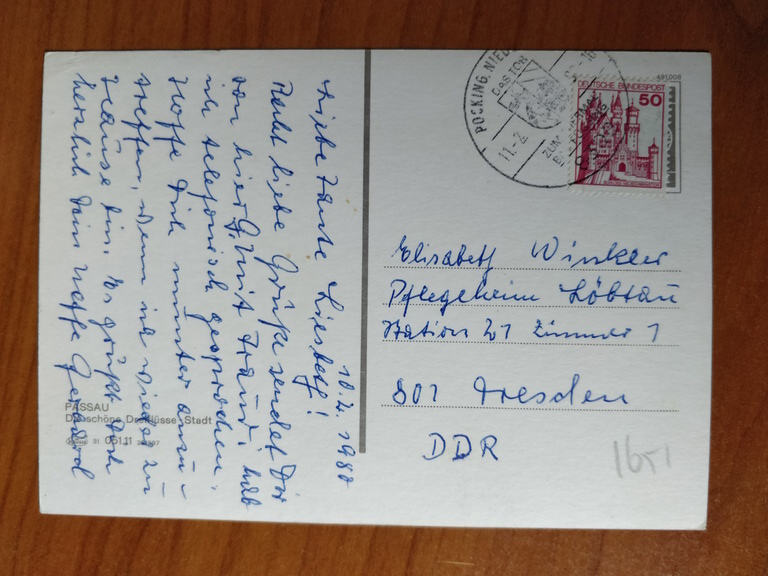 10.2.1980
Liebe Tante Liesbeth!
Recht liebe Grüße sendet Dir
von hier G. Mit Traudi hab
ich telefonisch gesprochen.
Hoffe Dich munter anzu-
treffen, wenn ich wieder zu
Hause bin. Es grüßt Dich
herzlich Dein Neffe
PASSAU
Die schöne Dreiflüsse-Stadt
31 0511
POCKING, NIED
11.-2.
DEUTSCHE BUNDESPOST
50
Elisabeth Winkler
Pflegeheim Löbtau
Station Zimmer 1
801 Dresden
DDR
1651